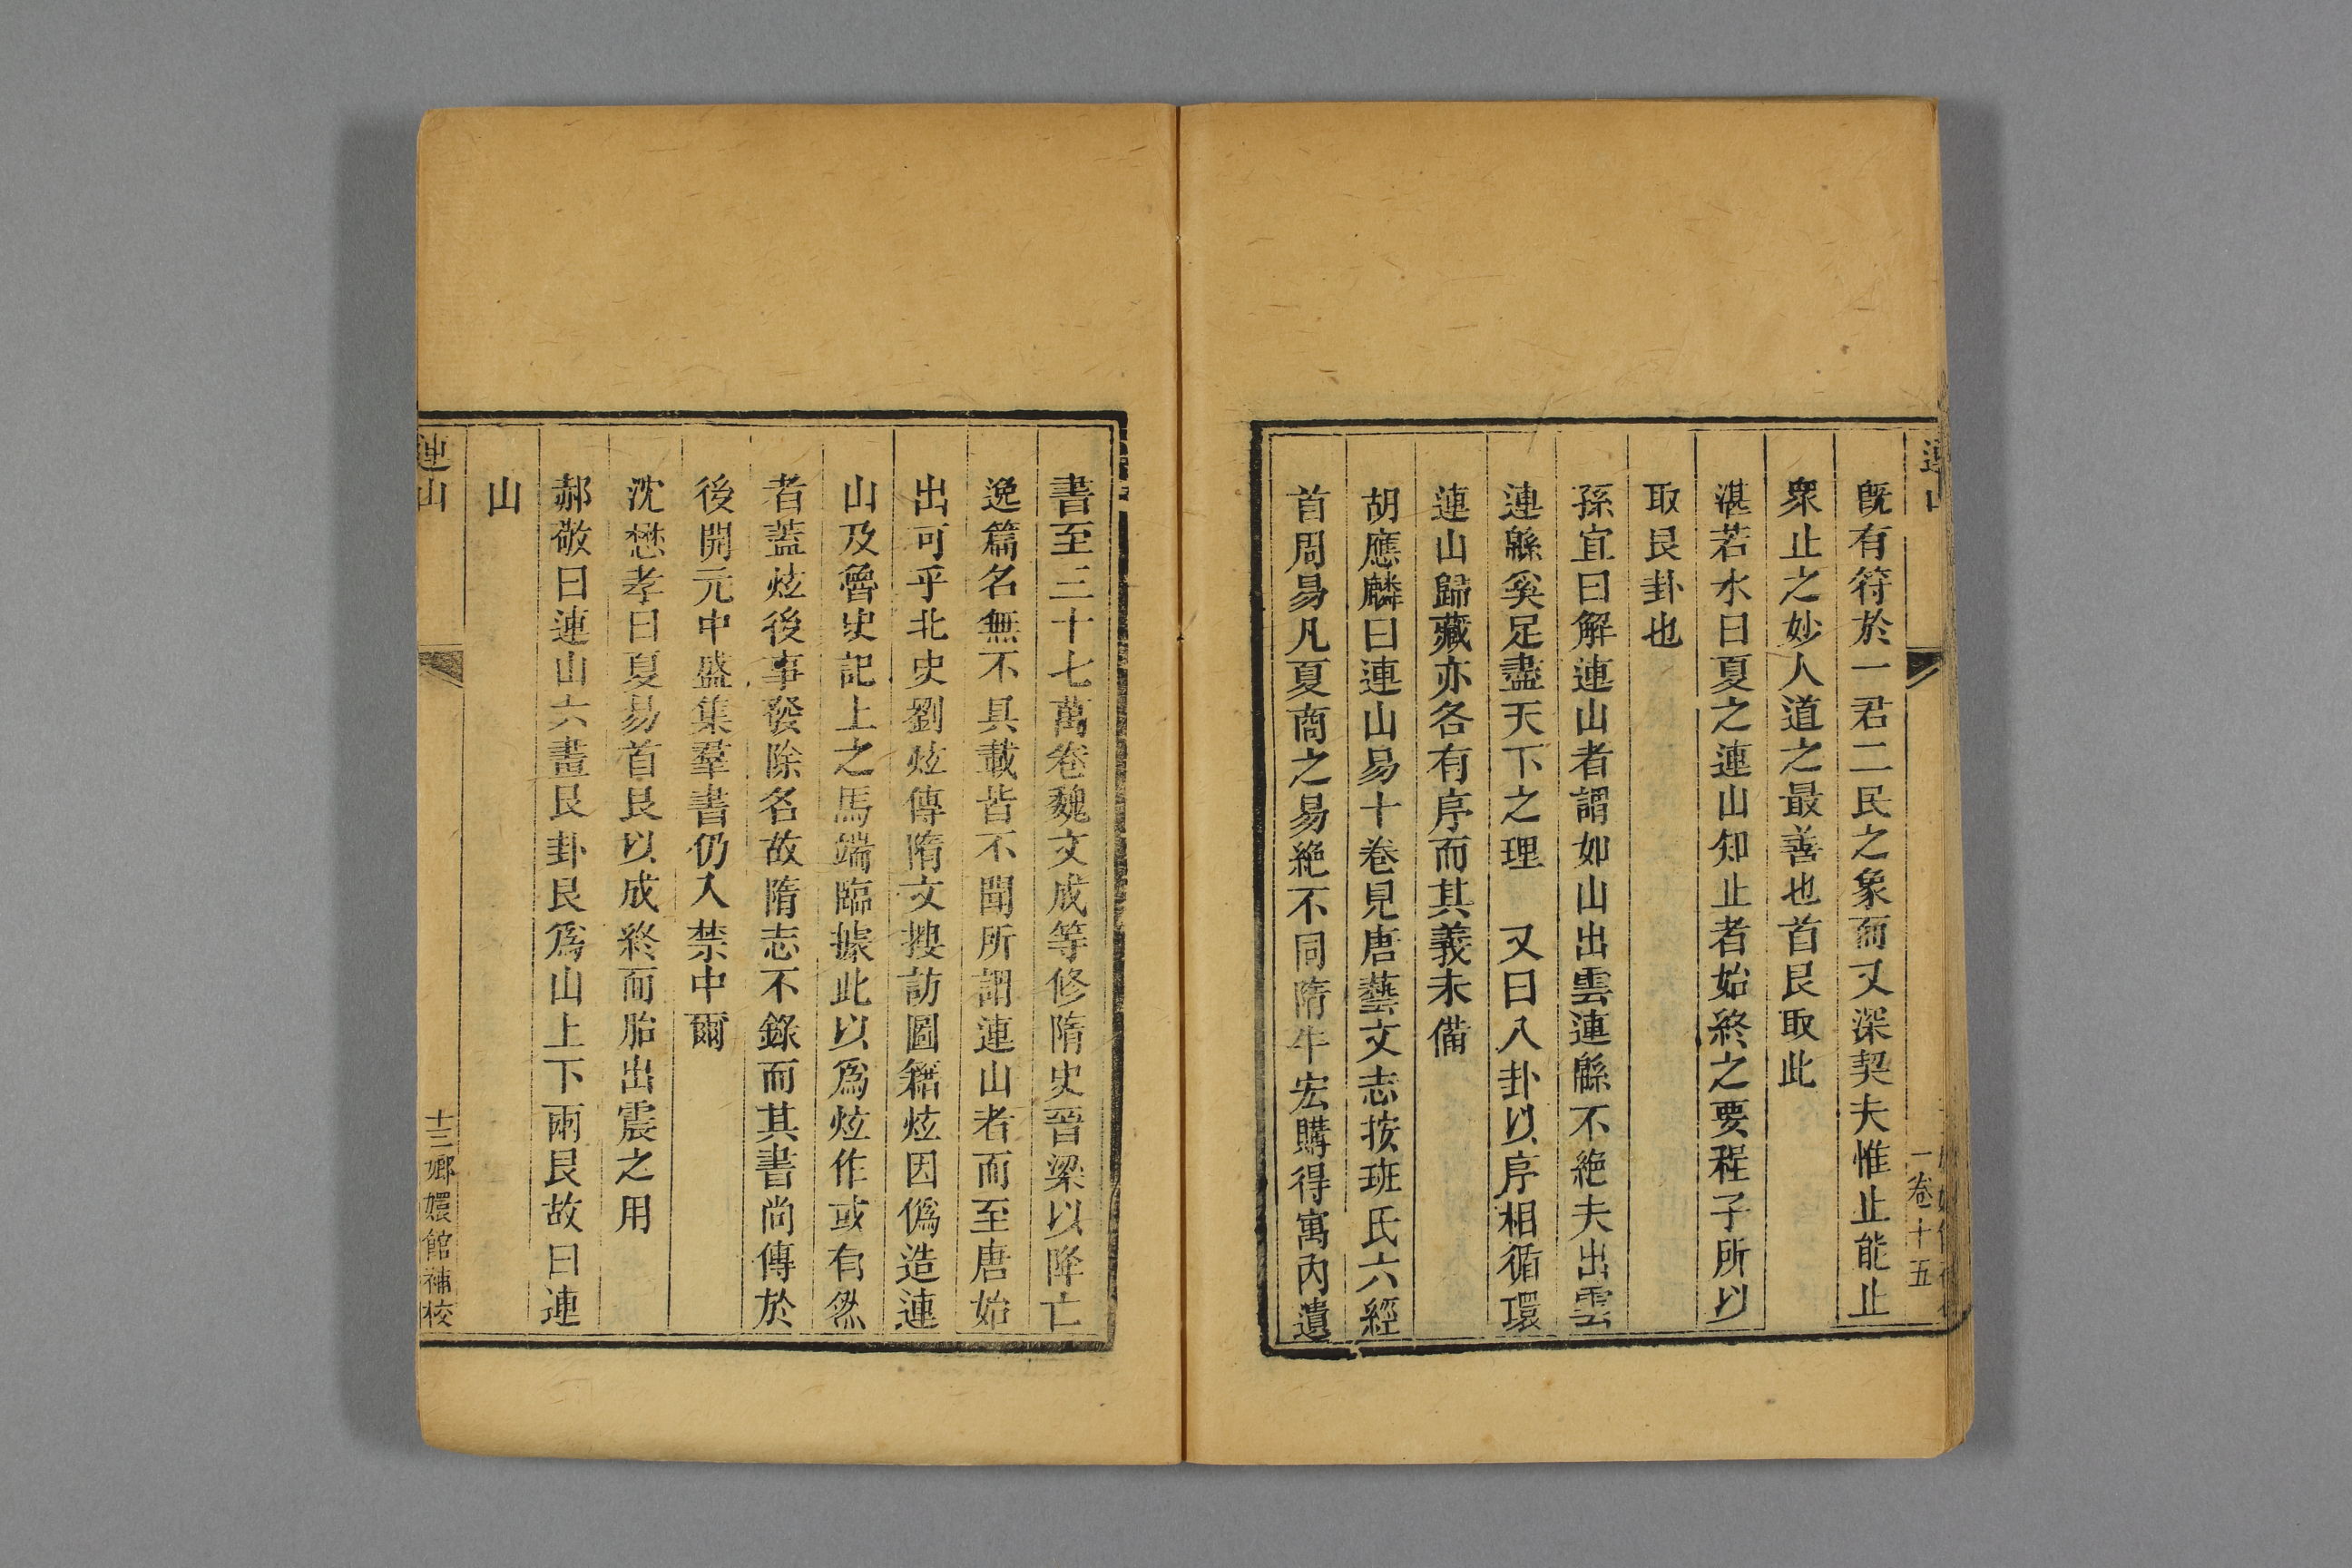 連山
一卷十五
既有符於一君二民之象而又深契夫惟止能止
衆止之妙人道之最善也首艮取此
湛若水曰夏之連山知止者始終之要程子所以
取艮卦也
孫宜曰解連山者謂如山出雲連緜不絶夫出雲
連緜奚足盡天下之理　又曰八卦以序相循環
連山歸藏亦各有序而其義未備
胡應麟曰連山易十卷見唐藝文志按班氏六經
首周易凡夏商之易絶不同隋牛宏購得寓内遺
書至三十七萬卷魏文成等修隋史晉梁以降亡
逸篇名無不具載皆不聞所謂連山者而至唐始
出可乎北史劉炫傳隋文搜訪圖籍炫因僞造連
山及魯史記上之馬端臨據此以爲炫作或有然
者蓋炫後事發除名故隋志不錄而其書尚傳於
後開元中盛集羣書仍入禁中爾
沈懋孝曰夏易首艮以成終而胎出震之用
郝敬曰連山六畫艮卦艮爲山上下兩艮故曰連
山
連山
十三
嫏嬛館補校